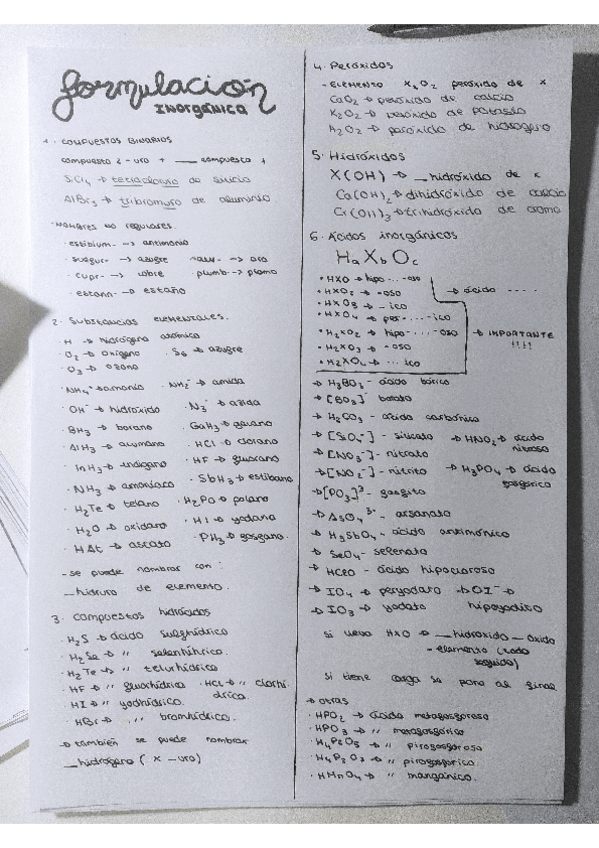 formulación
INORGÁNICA
1. COMPUESTOS BINARIOS
compuesto 2-uro + ___ compuesto 1
SiCl4 → tetracloruro de silicio
AlBr3 → tribromuro de aluminio
NOMBRES NO REGULARES.
· estibium- --> antimonio
· sulfur- → azufre ·aur- -> oro
· cupr- -> cobre · plumb--> plomo
· estann- → estaño
2. Substancias elementales.
· H → hidrógeno atómico
· O2 → oxígeno · S6 → azufre
· O3 → ozono
· NH4+ → amonio · NH2- → amida
· OH- → hidróxido · N3- → azida
· BH3 → borano · GaH3 → galano
· AlH3 → alumano · HCl → clorano
· InH3 → indigano · HF → fluorano
· NH3 → amoníaco · SbH3 → estibano
· H2Te → telano · H2Po → polano
· H2O → oxidano · HI → yodano
· HAt → astato · PH3 → fosfano.
- se puede nombrar con:
__hidruro de elemento.
3. Compuestos hidrácidos
· H2S → ácido sulfhídrico
· H2Se → " selenhídrico
· H2Te → " telurhídrico
· HF → " fluorhídrico · HCl → " clorhí-
drico.
· HI → " yodhídrico.
· HBr → " bromhídrico.
→ también se puede nombrar
__hidrógeno (x-uro)
4. Peróxidos
- ELEMENTO X2O2 peróxido de x
CaO2 → peróxido de calcio
K2O2 → peróxido de potasio
H2O2 → peróxido de hidrógeno
5. Hidróxidos
X(OH) → __hidróxido de x
Ca(OH)2 → dihidróxido de calcio
Cr(OH)3 → trihidróxido de cromo
6. Ácidos inorgánicos
HaXbOc
· HXO → hipo ···-oso
· HXO2 → -oso → ácido ----
· HXO3 → -ico
· HXO4 → per-···-ico
· H2XO2 → hipo-···-oso → IMPORTANTE
!!!!
· H2XO3 → -oso
· H2XO4 → ··· ico
→ H3BO3 - ácido bórico
→ [BO3]3- borato
→ H2CO3 - ácido carbónico
→ [SiO4-] - silicato → HNO2 → ácido
nitroso
→ [NO3-] - nitrato
→ [NO2-] - nitrito → H3PO4 → ácido
fosfórico
→ [PO3]3- fosfito
→ AsO4 3- - arsenato
→ H3SbO4 - ácido antimónico
→ SeO4 - selenato
→ HClO - ácido hipocloroso
→ IO4 → peryodato → OI- →
→ IO3 → yodato hipoyodito
si llevo HXO → __hidroxido__oxido
- elemento (todo
seguido)
si tiene carga se pone al final
→ otras
· HPO2 → ácido metafosforoso
· HPO3 → " metafosfórico
· H4P2O5 → " pirofosforoso
· H4P2O7 → " pirofosfórico
· HMnO4 → " mangánico.